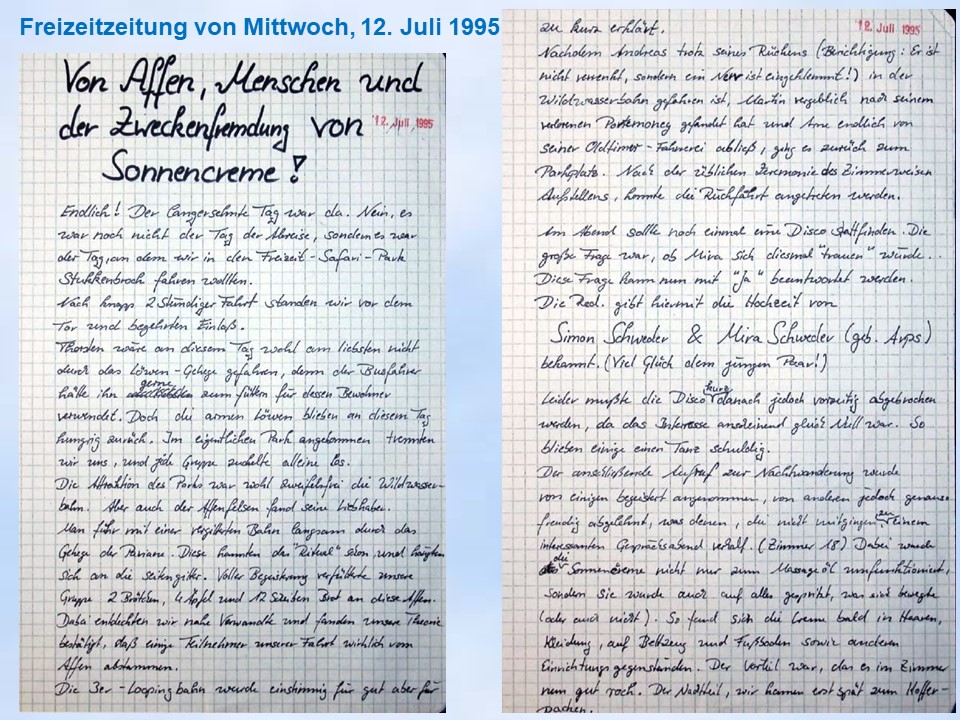 Freizeitzeitung von Mittwoch, 12. Juli 1995
Von Affen, Menschen und
der Zweckenfremdung von
12. Juli 1995
Sonnencreme!
Endlich! Der langersehnte Tag war da. Nein, es
war noch nicht der Tag der Abreise, sondern es war
der Tag, an dem wir in den Freizeit-Safari-Park
Stukkenbroch fahren wollten.
Nach knapp 2 stündiger Fahrt standen wir vor dem
Tor und begehrten Einlaß.
Thorsten wäre an diesem Tag wohl am liebsten nicht
durch das Löwen-Gehege gefahren, denn der Busfahrer
hätte ihn gerne zum füttern für dessen Bewohner
verwendet. Doch die armen Löwen blieben an diesem Tag
hungrig zurück. Im eigentlichen Park angekommen trennten
wir uns, und jede Gruppe zuckelte alleine los.
Die Attraktion des Parks war wohl zweifelsfrei die Wildwasser-
bahn. Aber auch der Affenfelsen fand seine Liebhaber.
Man fuhr mit einer vergitterten Bahn langsam durch das
Gehege der Paviane. Diese kannten das "Ritual" schon, und hängten
sich an die Seitengitter. Voller Begeisterung verfütterte unsere
Gruppe 2 Brötchen, 4 Äpfel und 12 Scheiben Brot an diese Affen.
Dabei entdeckten wir nahe Verwandte und fanden unsere Theorie
bestätigt, daß einige Teilnehmer unserer Fahrt wirklich vom
Affen abstammen.
Die 3er-Loopingbahn wurde einstimmig für gut aber für
zu kurz erklärt.
12. Juli 1995
Nachdem Andreas trotz seines Rückens (Berichtigung: Er ist
nicht verrenkt, sondern ein Nerv ist eingeklemmt!) in der
Wildwasserbahn gefahren ist, Martin vergeblich nach seinem
verlorenen Portemoney gefandet hat und Arne endlich von
seiner Oldtimer-Fahrerei abließ, ging es zurück zum
Parkplatz. Nach der üblichen Zeremonie des Zimmerweisen
Aufstellens, konnte die Rückfahrt angetreten werden.
Am Abend sollte noch einmal eine Disco stattfinden. Die
große Frage war, ob Mira sich diesmal "trauen" würde...
Diese Frage kann nun mit "Ja" beantwortet werden.
Die Red. gibt hiermit die Hochzeit von
Simon Schweder & Mira Schweder (geb. Arps)
bekannt. (Viel Glück dem jungen Paar!)
Leider mußte die Disco kurz danach jedoch vorzeitig abgebrochen
werden, da das Interesse anscheinend gleich Null war. So
blieben einige einen Tanz schuldig.
Der anschließende Aufruf zur Nachtwanderung wurde
von einigen begeistert angenommen, von anderen jedoch genauso
freudig abgelehnt, was denen, die nicht mitgingen zu einem
interessanten Gesprächsabend verhalf. (Zimmer 18) Dabei wurde
die Sonnencreme nicht nur zum Massageöl umfunktioniert,
sondern sie wurde auch auf alles gespritzt, was sich bewegte
(oder auch nicht). So fand sich die Creme bald in Haaren,
Kleidung, auf Bettzeug und Fußboden sowie anderen
Einrichtungsgegenständen. Der Vorteil war, das es im Zimmer
nun gut roch. Der Nachteil, wir kamen erst spät zum Koffer-
packen.